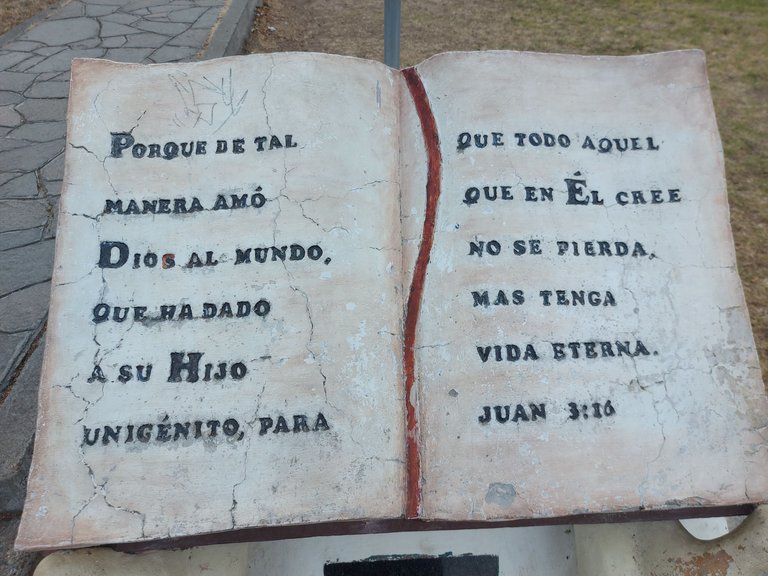 PORQUE DE TAL
MANERA AMÓ
DIOS AL MUNDO,
QUE HA DADO
A SU HIJO
UNIGÉNITO, PARA
QUE TODO AQUEL
QUE EN ÉL CREE
NO SE PIERDA,
MAS TENGA
VIDA ETERNA.
JUAN 3:16